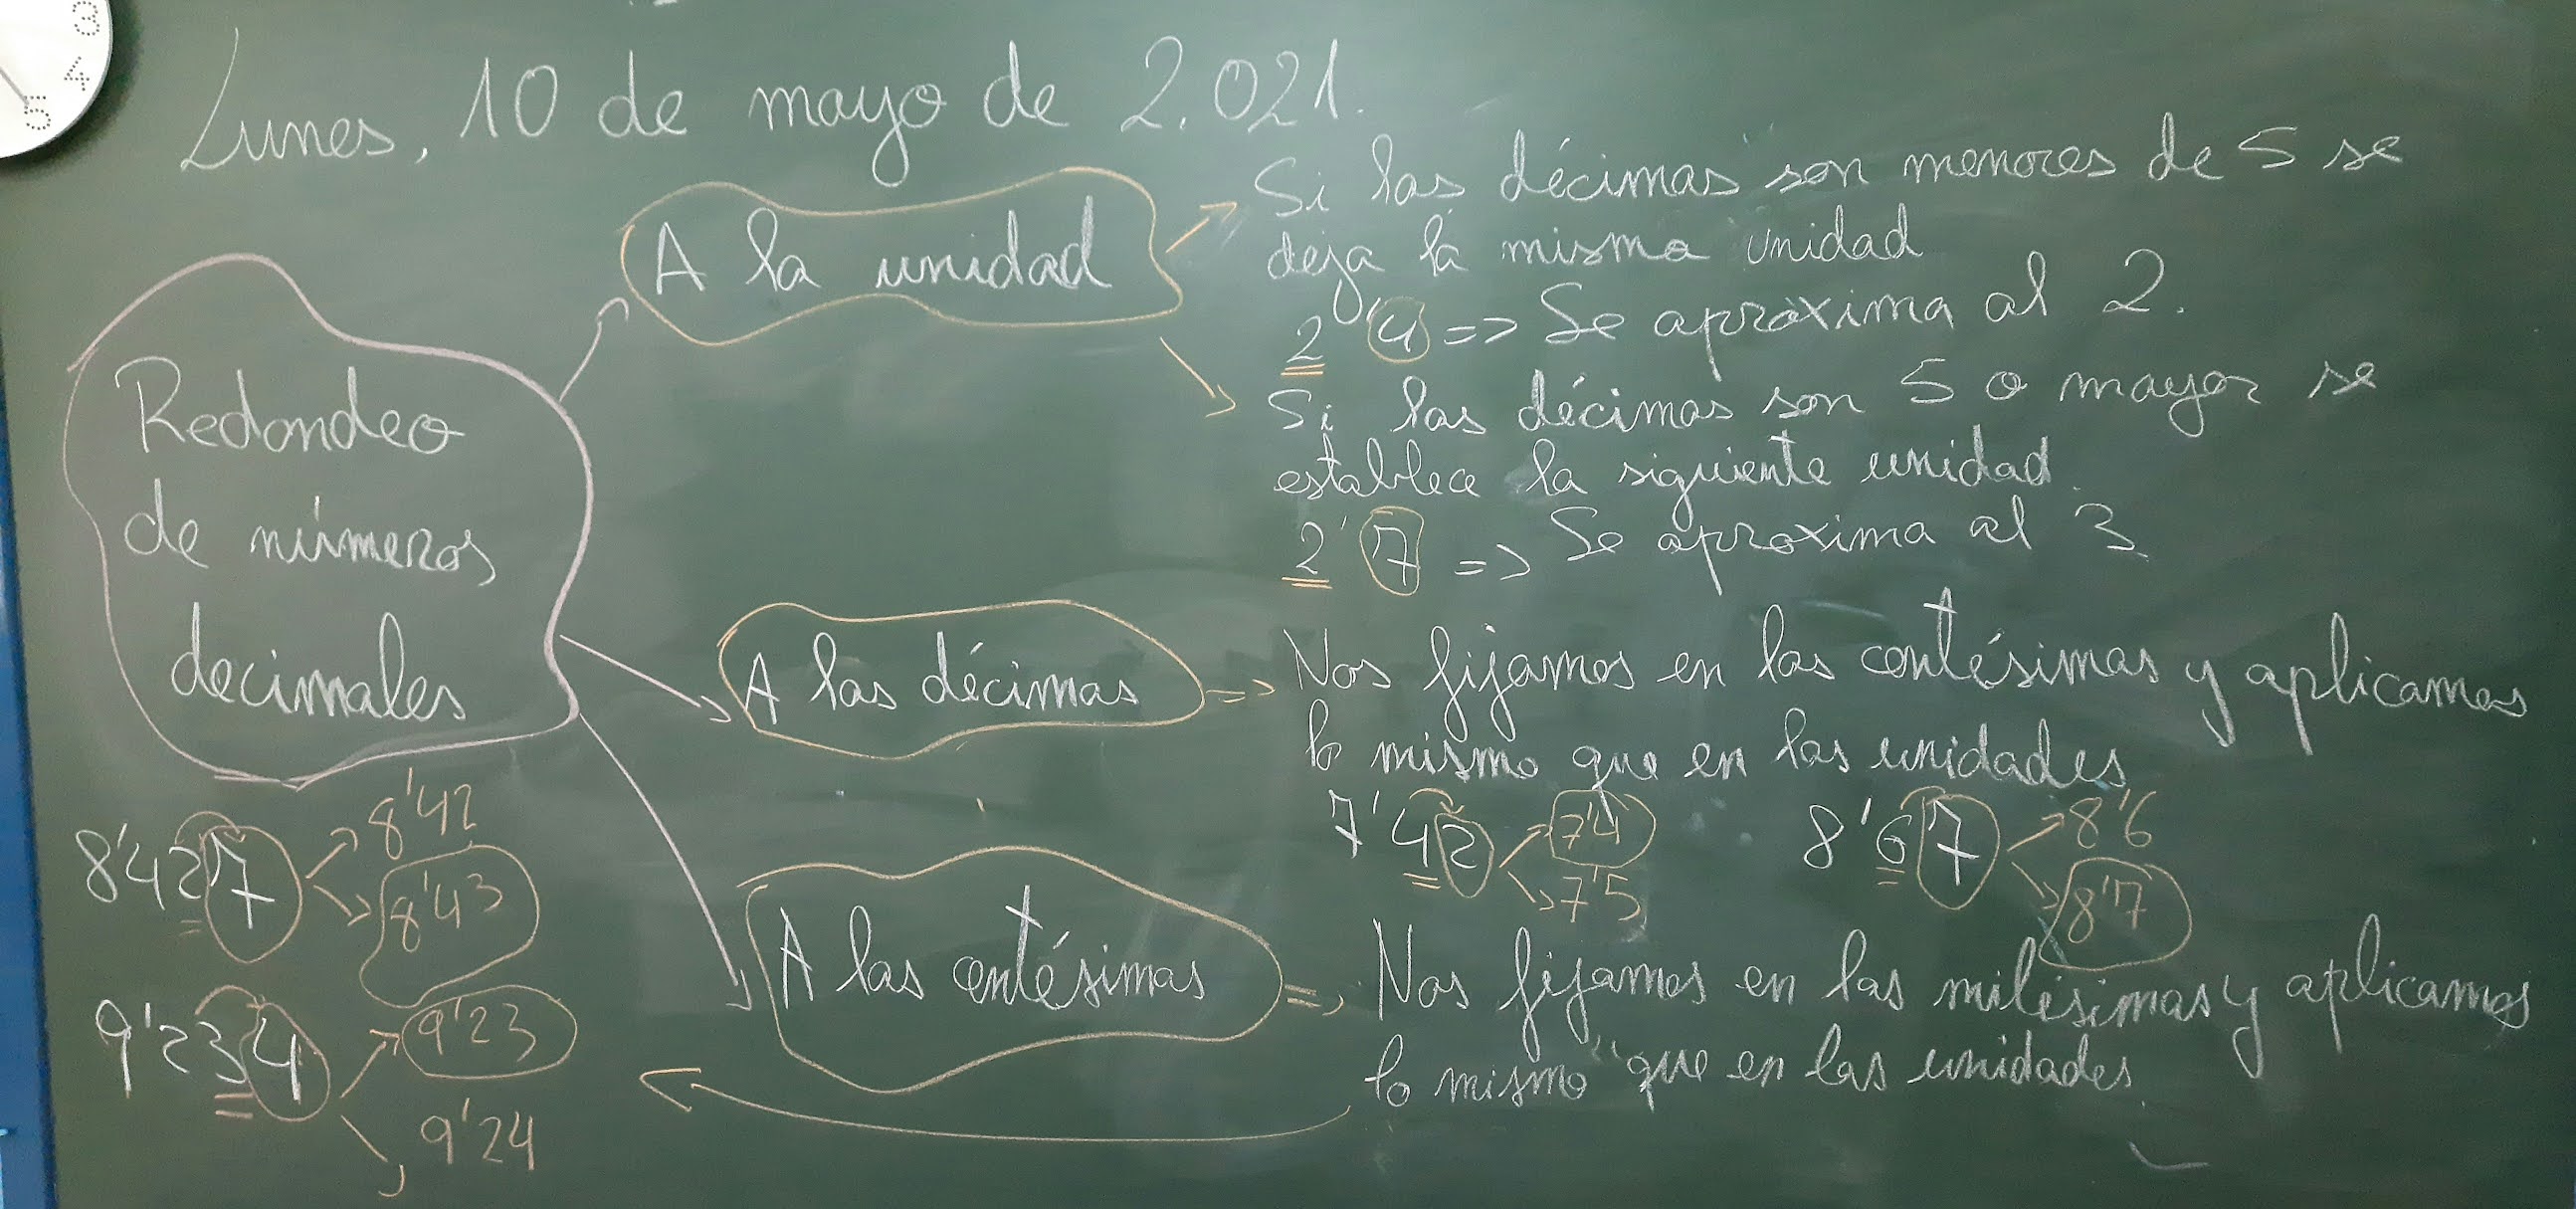 3
4
5
Lunes, 10 de mayo de 2.021.
Redondeo
de números
decimales
A la unidad
Si las décimas son menores de 5 se
deja la misma unidad
2'4 => Se aproxima al 2.
Si las décimas son 5 o mayor se
establece la siguiente unidad.
2'7 => Se aproxima al 3
A las décimas =>
Nos fijamos en las centésimas y aplicamos
lo mismo que en las unidades
7'42
7'4
7'5
8'67
8'6
8'7
A las centésimas =>
Nos fijamos en las milésimas y aplicamos
lo mismo que en las unidades.
8'427
8'42
8'43
9'234
9'23
9'24